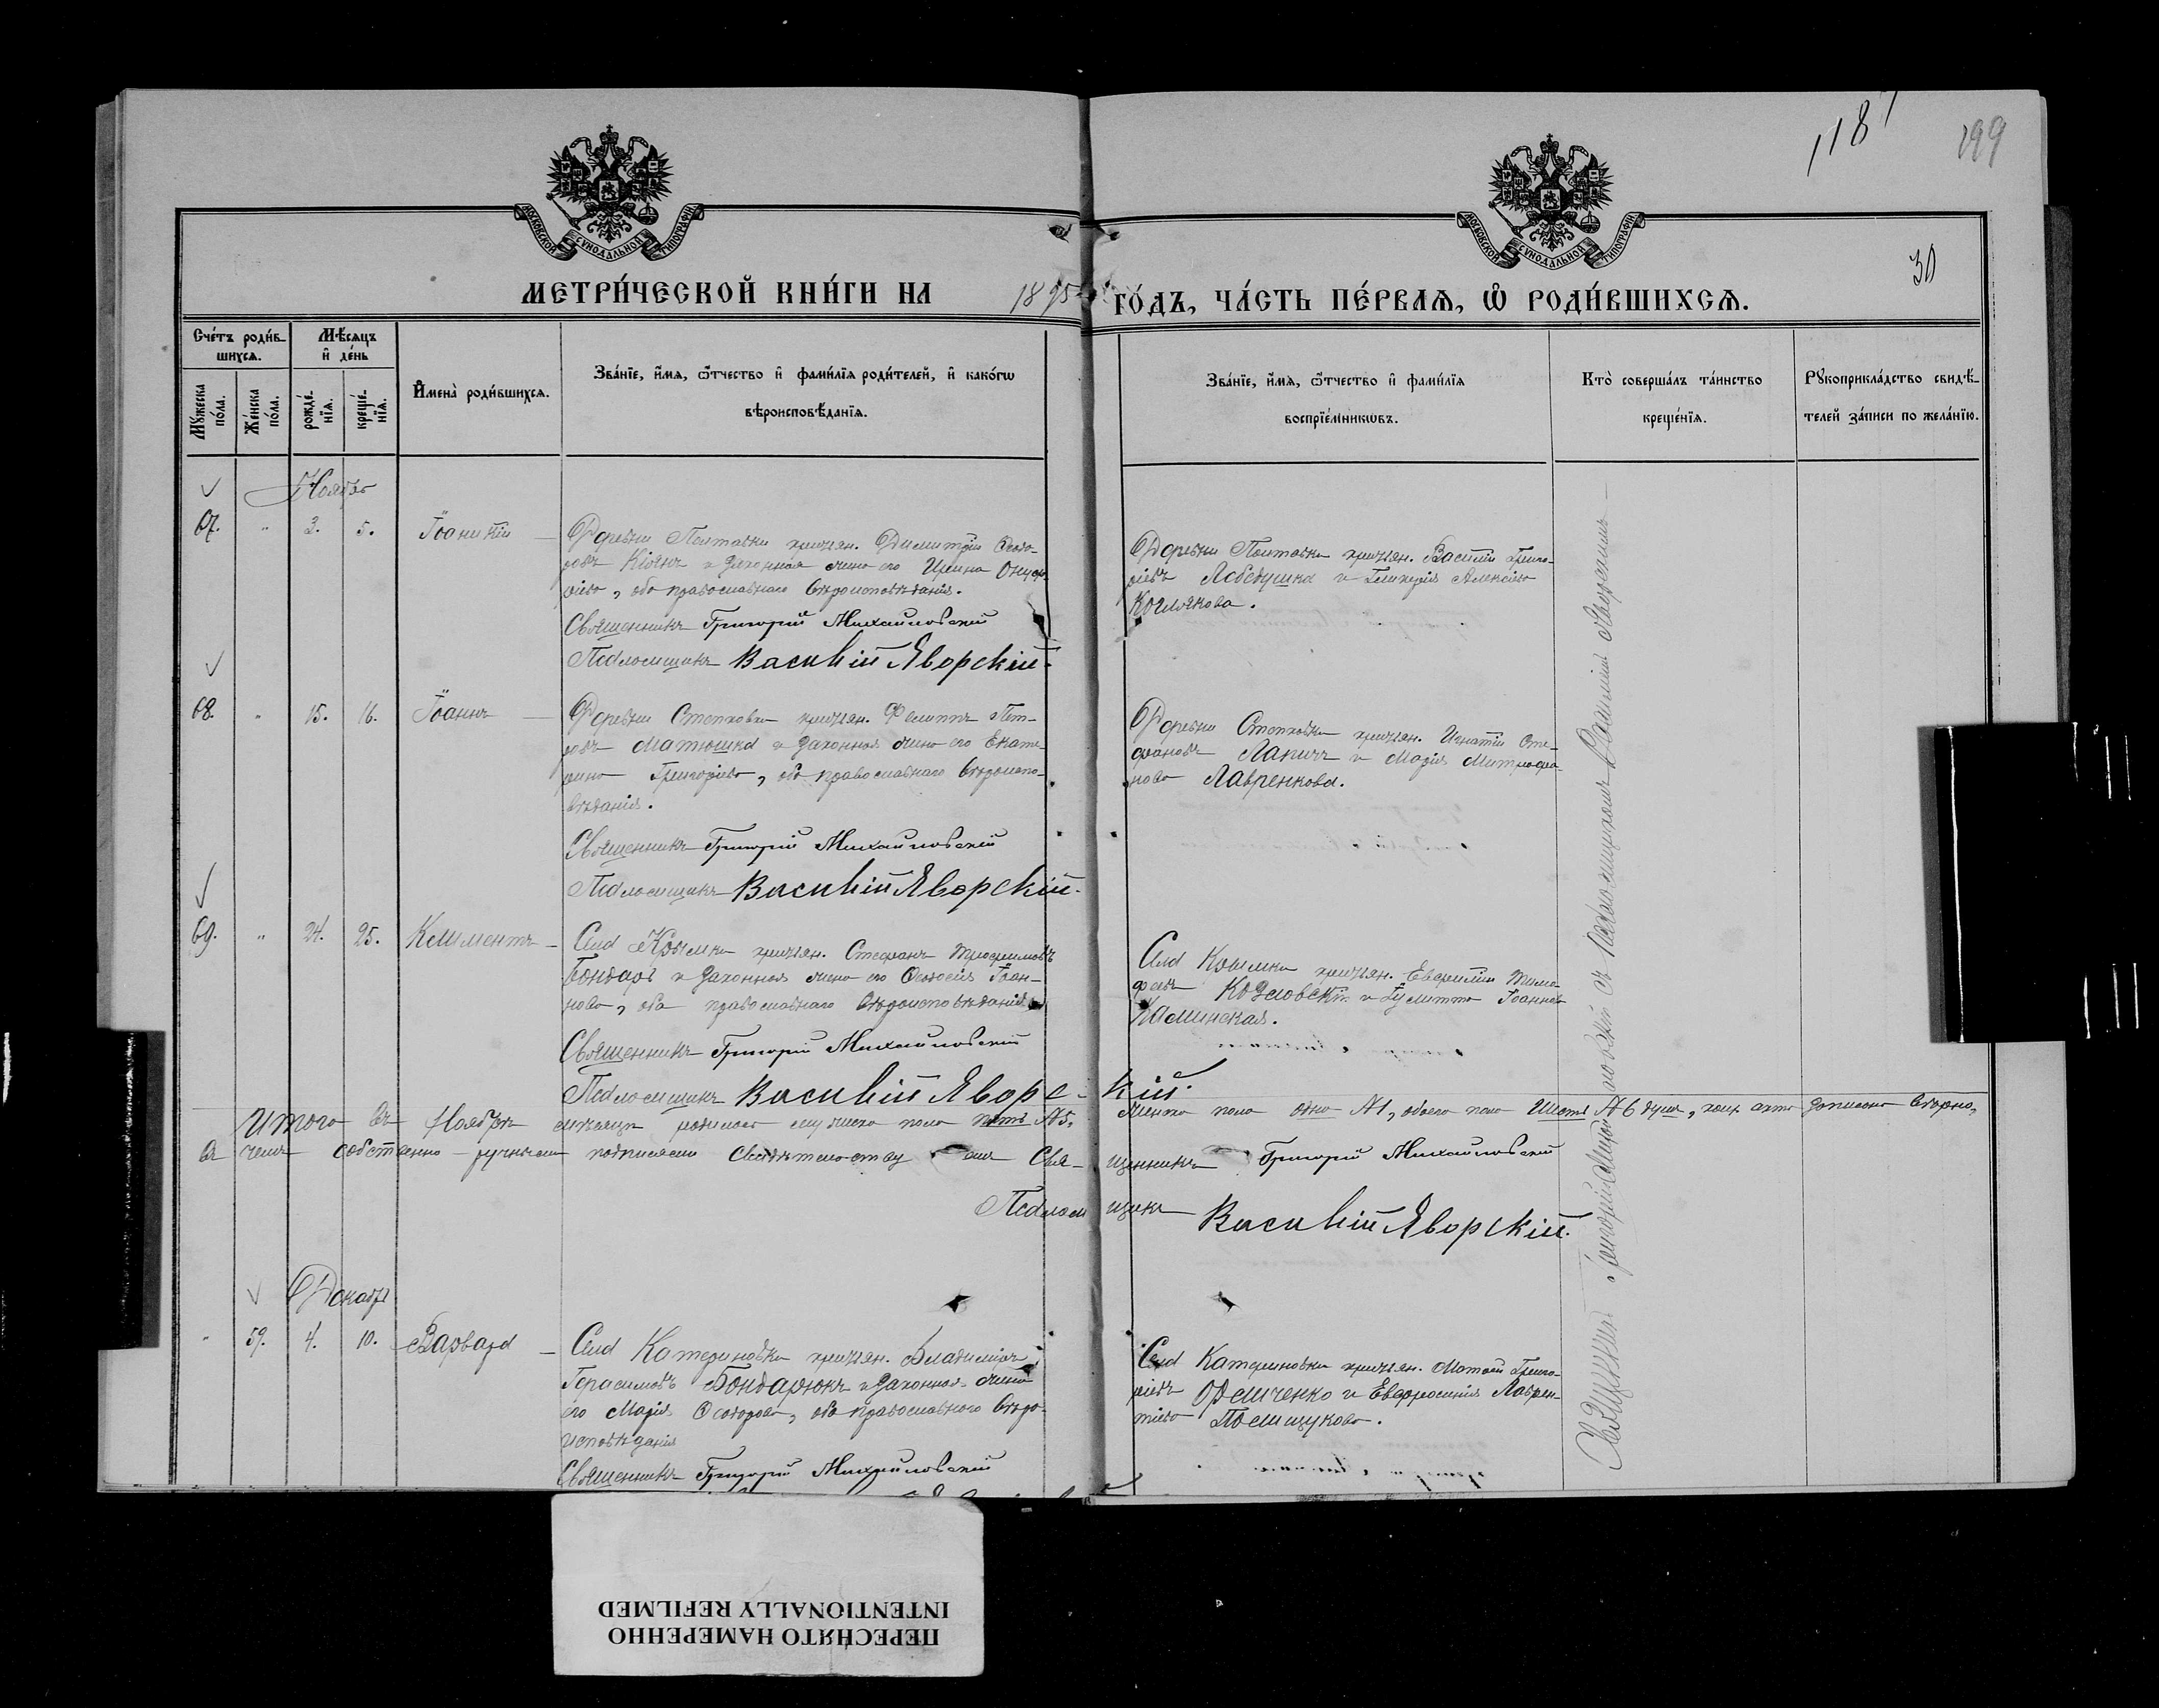 1187
199
30
МОСКОВСКОЙ СѴНОДАЛЬНОЙ ТИПОГРАФІИ
МОСКОВСКОЙ СѴНОДАЛЬНОЙ ТИПОГРАФІИ
МЕТРИ́ЧЕСКОЙ КНИ́ГИ НА 1895 ГО́ДЪ, ЧА́СТЬ ПЕ́РВАѦ, Ѽ РОДИ́ВШИХСѦ.
Сче́тъ роди́в-
шихсѧ.
Мѣ́сѧцъ
и҆ де́нь
Мꙋ́жеска по́ла.
Же́нска по́ла.
рожде́-нїѧ.
креще́-нїѧ.
И҆мена̀ роди́вшихсѧ.
Зва́нїе, и҆́мѧ, ѻ҆́тчество и҆ фами́лїѧ роди́телей, и҆ како́гѡ
вѣроисповѣ́данїѧ.
Зва́нїе, и҆́мѧ, ѻ҆́тчество и҆ фами́лїѧ
воспрїе́мникѡвъ.
Кто̀ соверша́лъ та́инство
креще́нїѧ.
Рꙋкоприкла́дство свидѣ́-
телей за́писи по жела́нїю.
Ноябрь
67. " 3. 5. Іоаникій
Деревни Полтавки крестьян. Димитрій Ѳеодо-
ровъ Кіянъ и законная жена его Ирина Онуф-
ріева, оба православнаго вѣроисповѣданія.
Священникъ Григорій Михайловскій
Псаломщикъ Василій Яворскій.
Деревни Полтавки крестьян. Василій Григо-
ріевъ Лебедушка и Гликерія Алексіева
68. " 15. 16. Іоаннъ
Деревни Степковки крестьян. Филиппъ Пет-
ровъ Матюшка и законная жена его Екате-
рина Григоріева, оба православнаго вѣроиспо-
вѣданія.
Священникъ Григорій Михайловскій
Псаломщикъ Василій Яворскій.
Деревни Степковки крестьян. Игнатій Сте-
фановъ Лапичъ и Марія Митрофа-
нова Лавренкова.
69. " 24. 25. Климентъ
Села Крымки крестьян. Стефанъ Трофимовъ
Бондарь и законная жена его Ѳеодосія Іоан-
нова, оба православнаго вѣроисповѣданія
Священникъ Григорій Михайловскій
Псаломщикъ Василій Яворскій.
Села Крымки крестьян. Евфимій Тимо-
феевъ Козловскій и Іулитта Іоаннова
Каминская.
Итого въ Ноябрѣ мѣсяцѣ родилось мужеска пола пять №5, женска пола одна №1, обоего пола шесть №6 душ, коих акты записаны вѣрно,
въ чемъ собственно-ручными подписями свидѣтельствуем Священникъ Григорій Михайловскій
Псаломщикъ Василій Яворскій.
Декабрь
" 59. 4. 10. Варвара
Села Катериновки крестьян. Владиміръ
Герасимовъ Бондарюкъ и законная жена
его Марія Ѳеодорова, оба православнаго вѣро-
исповѣданія
Священникъ Григорій Михайловскій
Села Катериновки крестьян. Матвѣй Григо-
ріевъ и Евфросинія Лаврен-
тіева
Священникъ Григорій Михайловскій съ псаломщикомъ Василіемъ Яворскимъ
ПЕРЕСНЯТО НАМЕРЕННО
INTENTIONALLY REFILMED